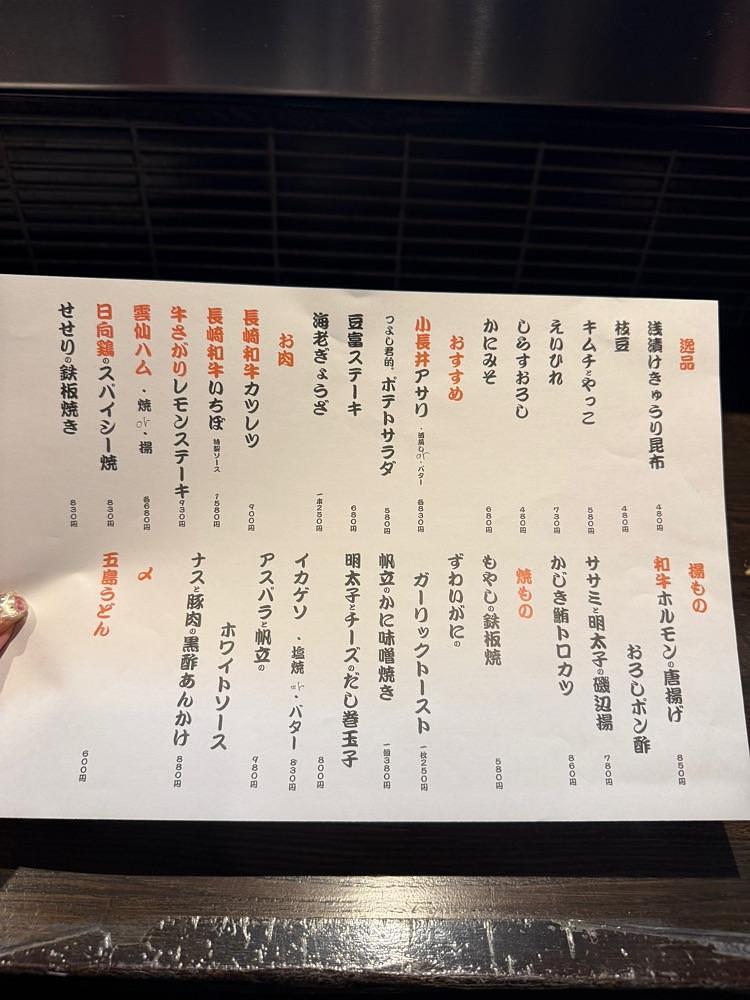 逸品
浅漬けきゅうり昆布 480円
枝豆 480円
キムチとやっこ 580円
えいひれ 730円
しらすおろし 480円
かにみそ 680円
おすすめ
小長井アサリ ・酒蒸しor・バター 各830円
つよし君的！ポテトサラダ 580円
豆富ステーキ 680円
海老ぎょうざ 一本250円
お肉
長崎和牛カツレツ 900円
長崎和牛いちぼ 特製ソース 1580円
牛さがりレモンステーキ 930円
雲仙ハム ・焼or・揚 各680円
日向鶏のスパイシー焼 830円
せせりの鉄板焼き 830円
揚もの
和牛ホルモンの唐揚げ 850円
おろしポン酢
ササミと明太子の磯辺揚 780円
かじき鮪トロカツ 860円
焼もの
もやしの鉄板焼 580円
ずわいがにの
ガーリックトースト 一枚250円
帆立のかに味噌焼き 一個380円
明太子とチーズのだし巻玉子 800円
イカゲソ ・塩焼or・バター 830円
アスパラと帆立の 980円
ホワイトソース
ナスと豚肉の黒酢あんかけ 880円
〆
五島うどん 600円